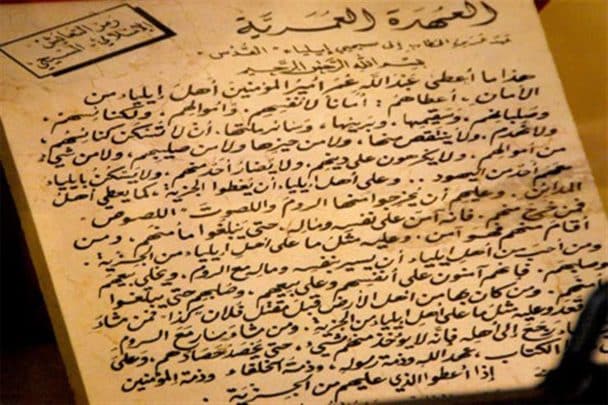 العهدة العمرية
رمز التعايش
الإسلامي المسيحي
عهد عمر بن الخطاب إلى مسيحيي إيلياء "القدس"
بسم الله الرحمن الرحيم
هذا ما أعطى عبد الله عمر أمير المؤمنين أهل إيلياء من
الأمان، أعطاهم: أماناً لأنفسهم وأموالهم. ولكنائسهم.
وصلبانهم. وسقيمها. وبريئها. وسائر ملتها. أن لا تسكن كنائسهم.
ولا تهدم. ولا ينتقص منها. ولا من حيزها ولا من صليبهم. ولا من شيء
من أموالهم. ولا يكرهون على دينهم. ولا يضار أحد منهم. ولا يسكن بإيلياء
معهم أحد من اليهود.. وعلى أهل إيلياء أن يعطوا الجزية، كما يعطي أهل
المدائن. وعليهم أن يخرجوا منها الروم واللصوت "اللصوص"
فمن خرج منهم. فإنه آمن على نفسه وماله حتى يبلغوا مأمنهم. ومن
أقام منهم فهو آمن. وعليه مثل ما على أهل إيلياء من الجزية.
ومن أحب من أهل إيلياء أن يسير بنفسه وماله مع الروم. ويخلي بيعهم
وصلبهم. فإنهم آمنون على أنفسهم وعلى بيعهم. وصلبهم حتى يبلغوا
منهم. ومن كان بها من أهل الأرض قبل مقتل فلان فمن شاء
قعد وعليه مثل ما على أهل إيلياء من الجزية. ومن شاء سار مع الروم
رجع إلى أهله فإنه لا يؤخذ منهم شيء. حتى يحصد حصادهم. وعلى
الكتاب، عهد الله وذمة رسوله. وذمة الخلفاء وذمة المؤمنين
إذا أعطوا الذي عليهم من الجزية.